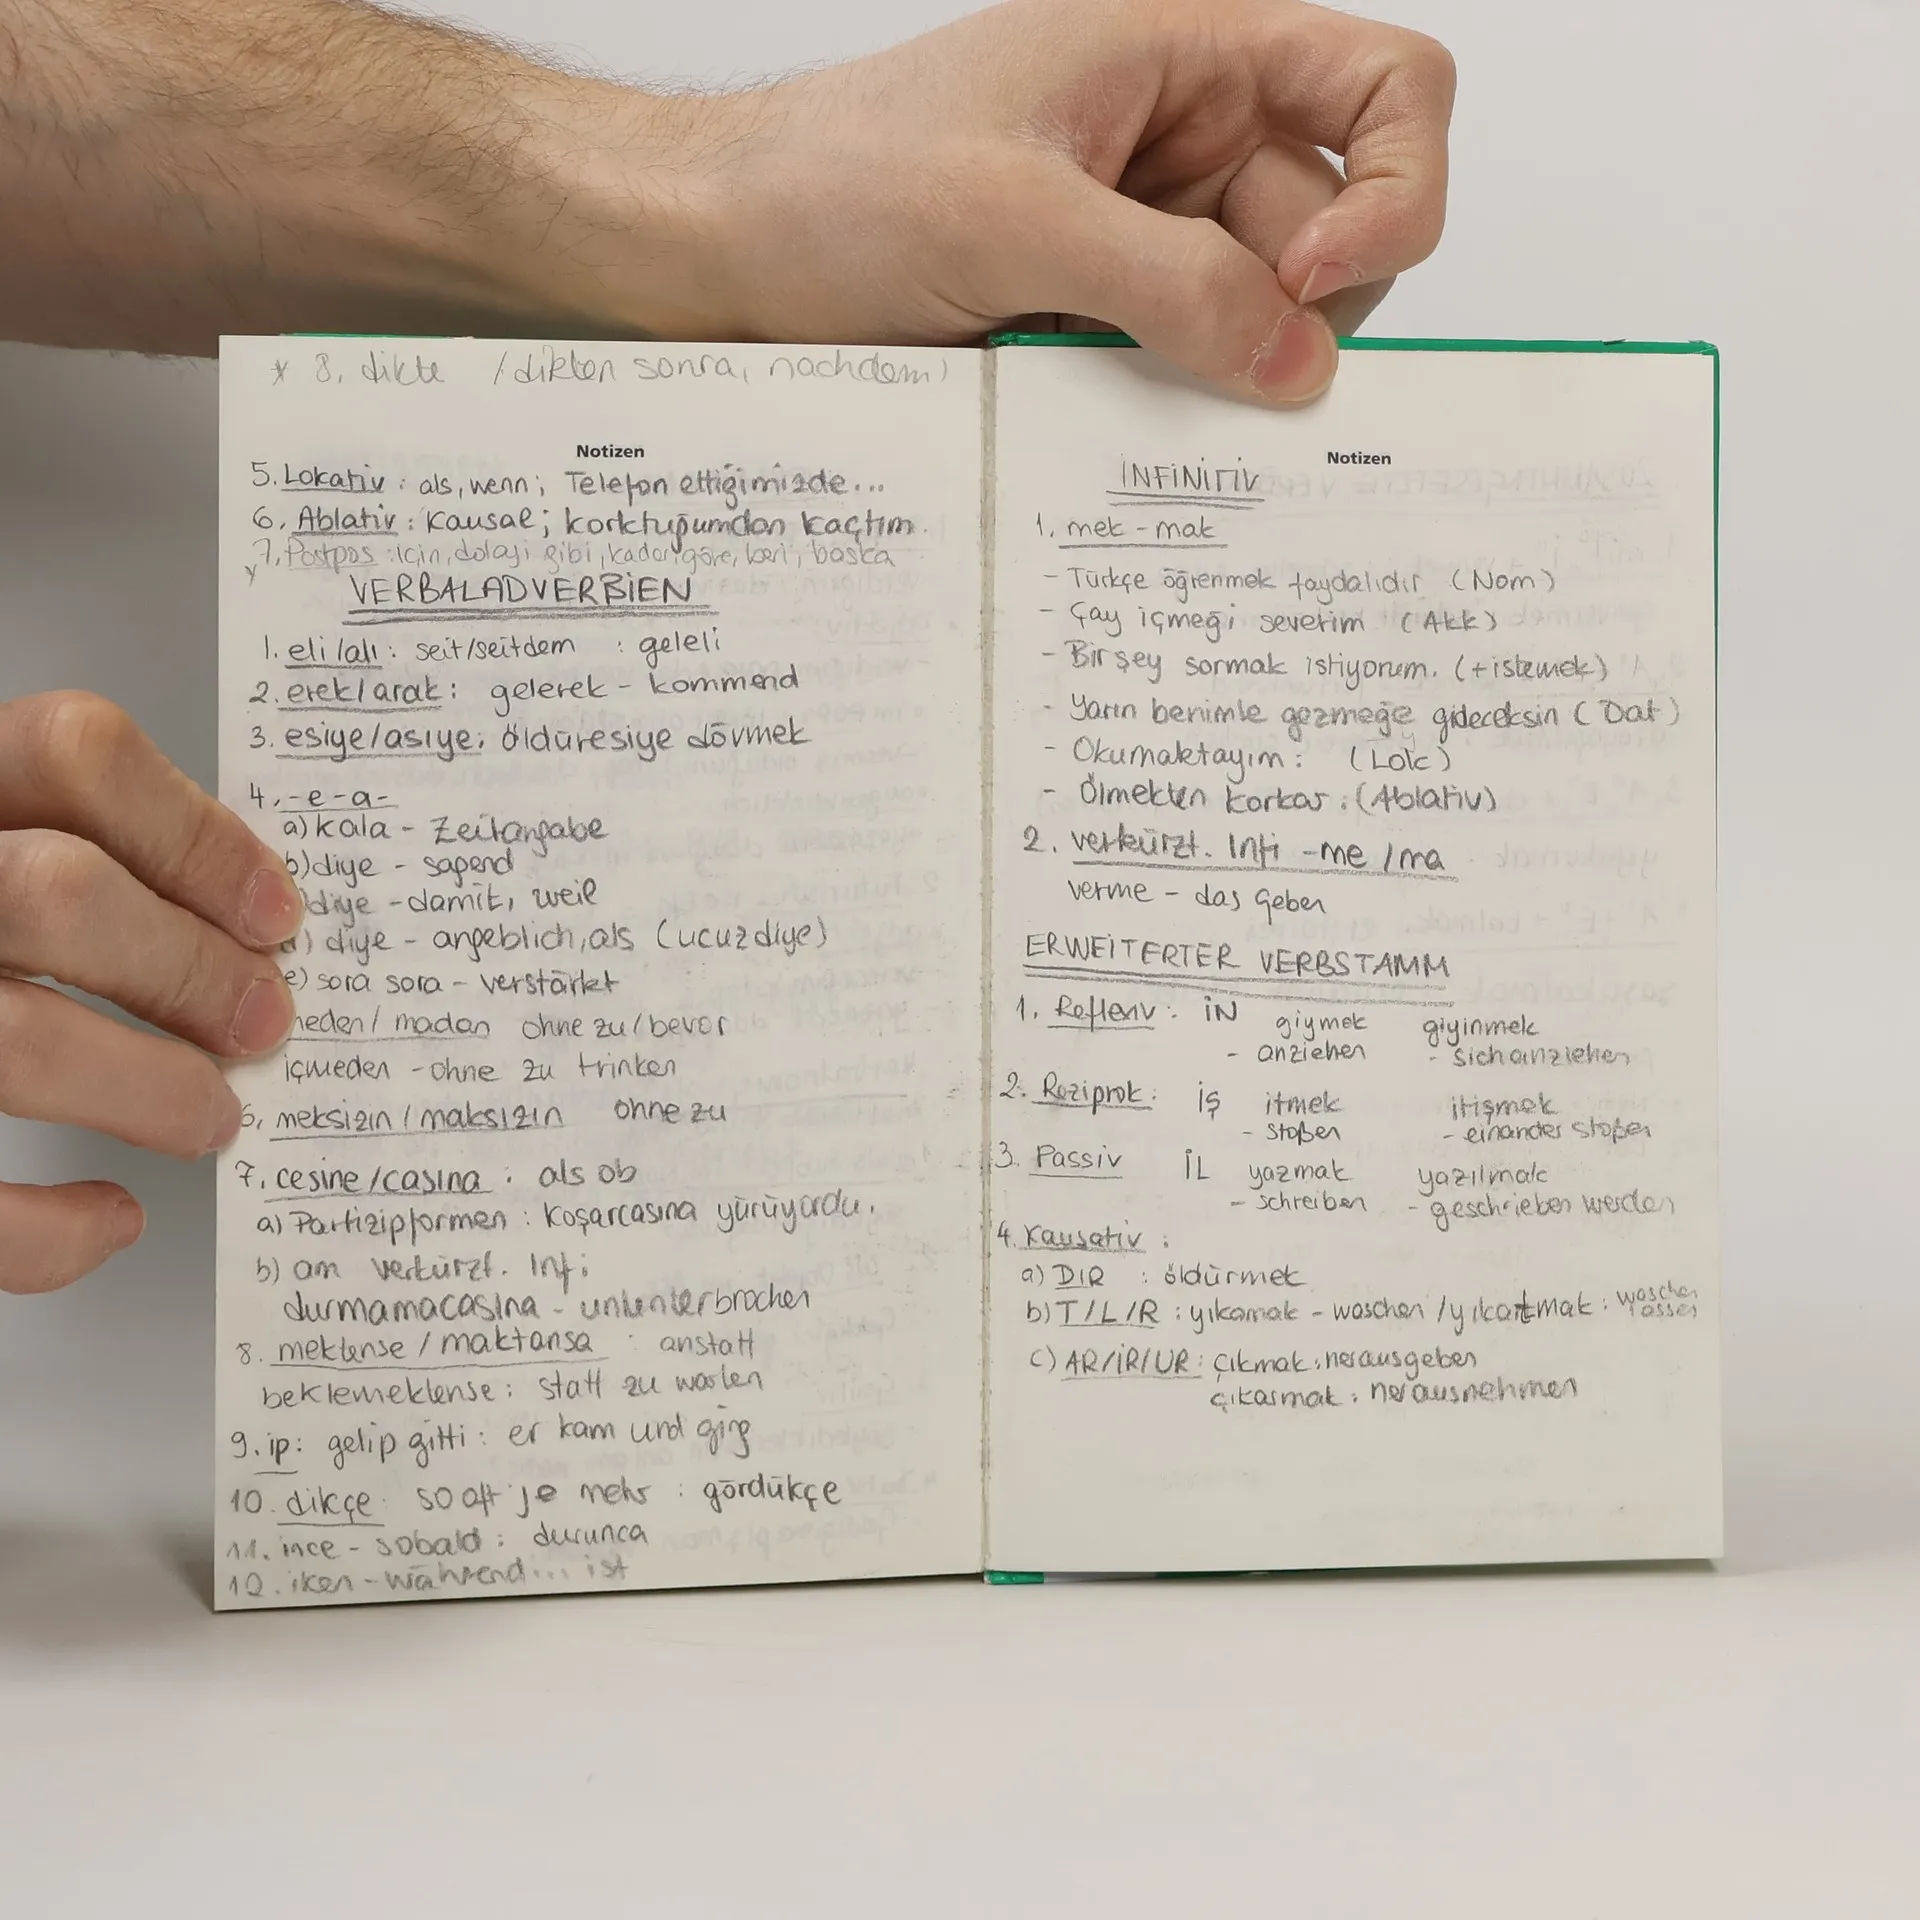 * 8. dikte / dikten sonra, nachdem)
Notizen
5. Lokativ : als, wenn; Telefon ettiğimizde...
6. Ablativ : Kausal; korktuğumdan kaçtım.
7. Postpos : için, dolayi gibi, kadar, göre, beri, başka
VERBALADVERBIEN
1. eli/alı : seit/seitdem : geleli
2. erek/arak : gelerek - kommend
3. esiye/asıye: öldüresiye dövmek
4. -e-a-
a) kala - Zeitangabe
b) diye - sagend
) diye - damit, weil
d) diye - angeblich, als (ucuz diye)
e) sora sora - verstärkt
meden / madan ohne zu / bevor
içmeden - ohne zu trinken
6. meksizin / maksızın ohne zu
7. cesine / casına : als ob
a) Partizipformen : koşarcasına yürüyordu.
b) am verkürzt. Inf:
durmamacasına - ununterbrochen
8. mektense / maktansa : anstatt
beklemektense : statt zu warten
9. ip: gelip gitti : er kam und ging
10. dikçe : so oft je mehr : gördükçe
11. ince - sobald : durunca
12. iken - während ... ist
Notizen
İNFİNİTİV
1. mek - mak
- Türkçe öğrenmek faydalıdır (Nom)
- Çay içmeği severim (Akk)
- Bir şey sormak istiyorum. (+istemek)
- Yarın benimle gezmeğe gideceksin (Dat)
- Okumaktayım : (Lok)
- Ölmekten korkar : (Ablativ)
2. verkürzt. Infi -me / ma
verme - das Geben
ERWEİTERTER VERBSTAMM
1. Reflexiv : İN giymek giyinmek
- anziehen - sich anziehen
2. Reziprok : İŞ itmek itişmek
- stoßen - einander stoßen
3. Passiv İL yazmak yazılmak
- schreiben - geschrieben werden
4. Kausativ :
a) DIR : öldürmek
b) T/L/R : yıkamak - waschen / yıkatmak : waschen lassen
c) AR/İR/UR : çıkmak : herausgeben
çıkarmak : herausnehmen